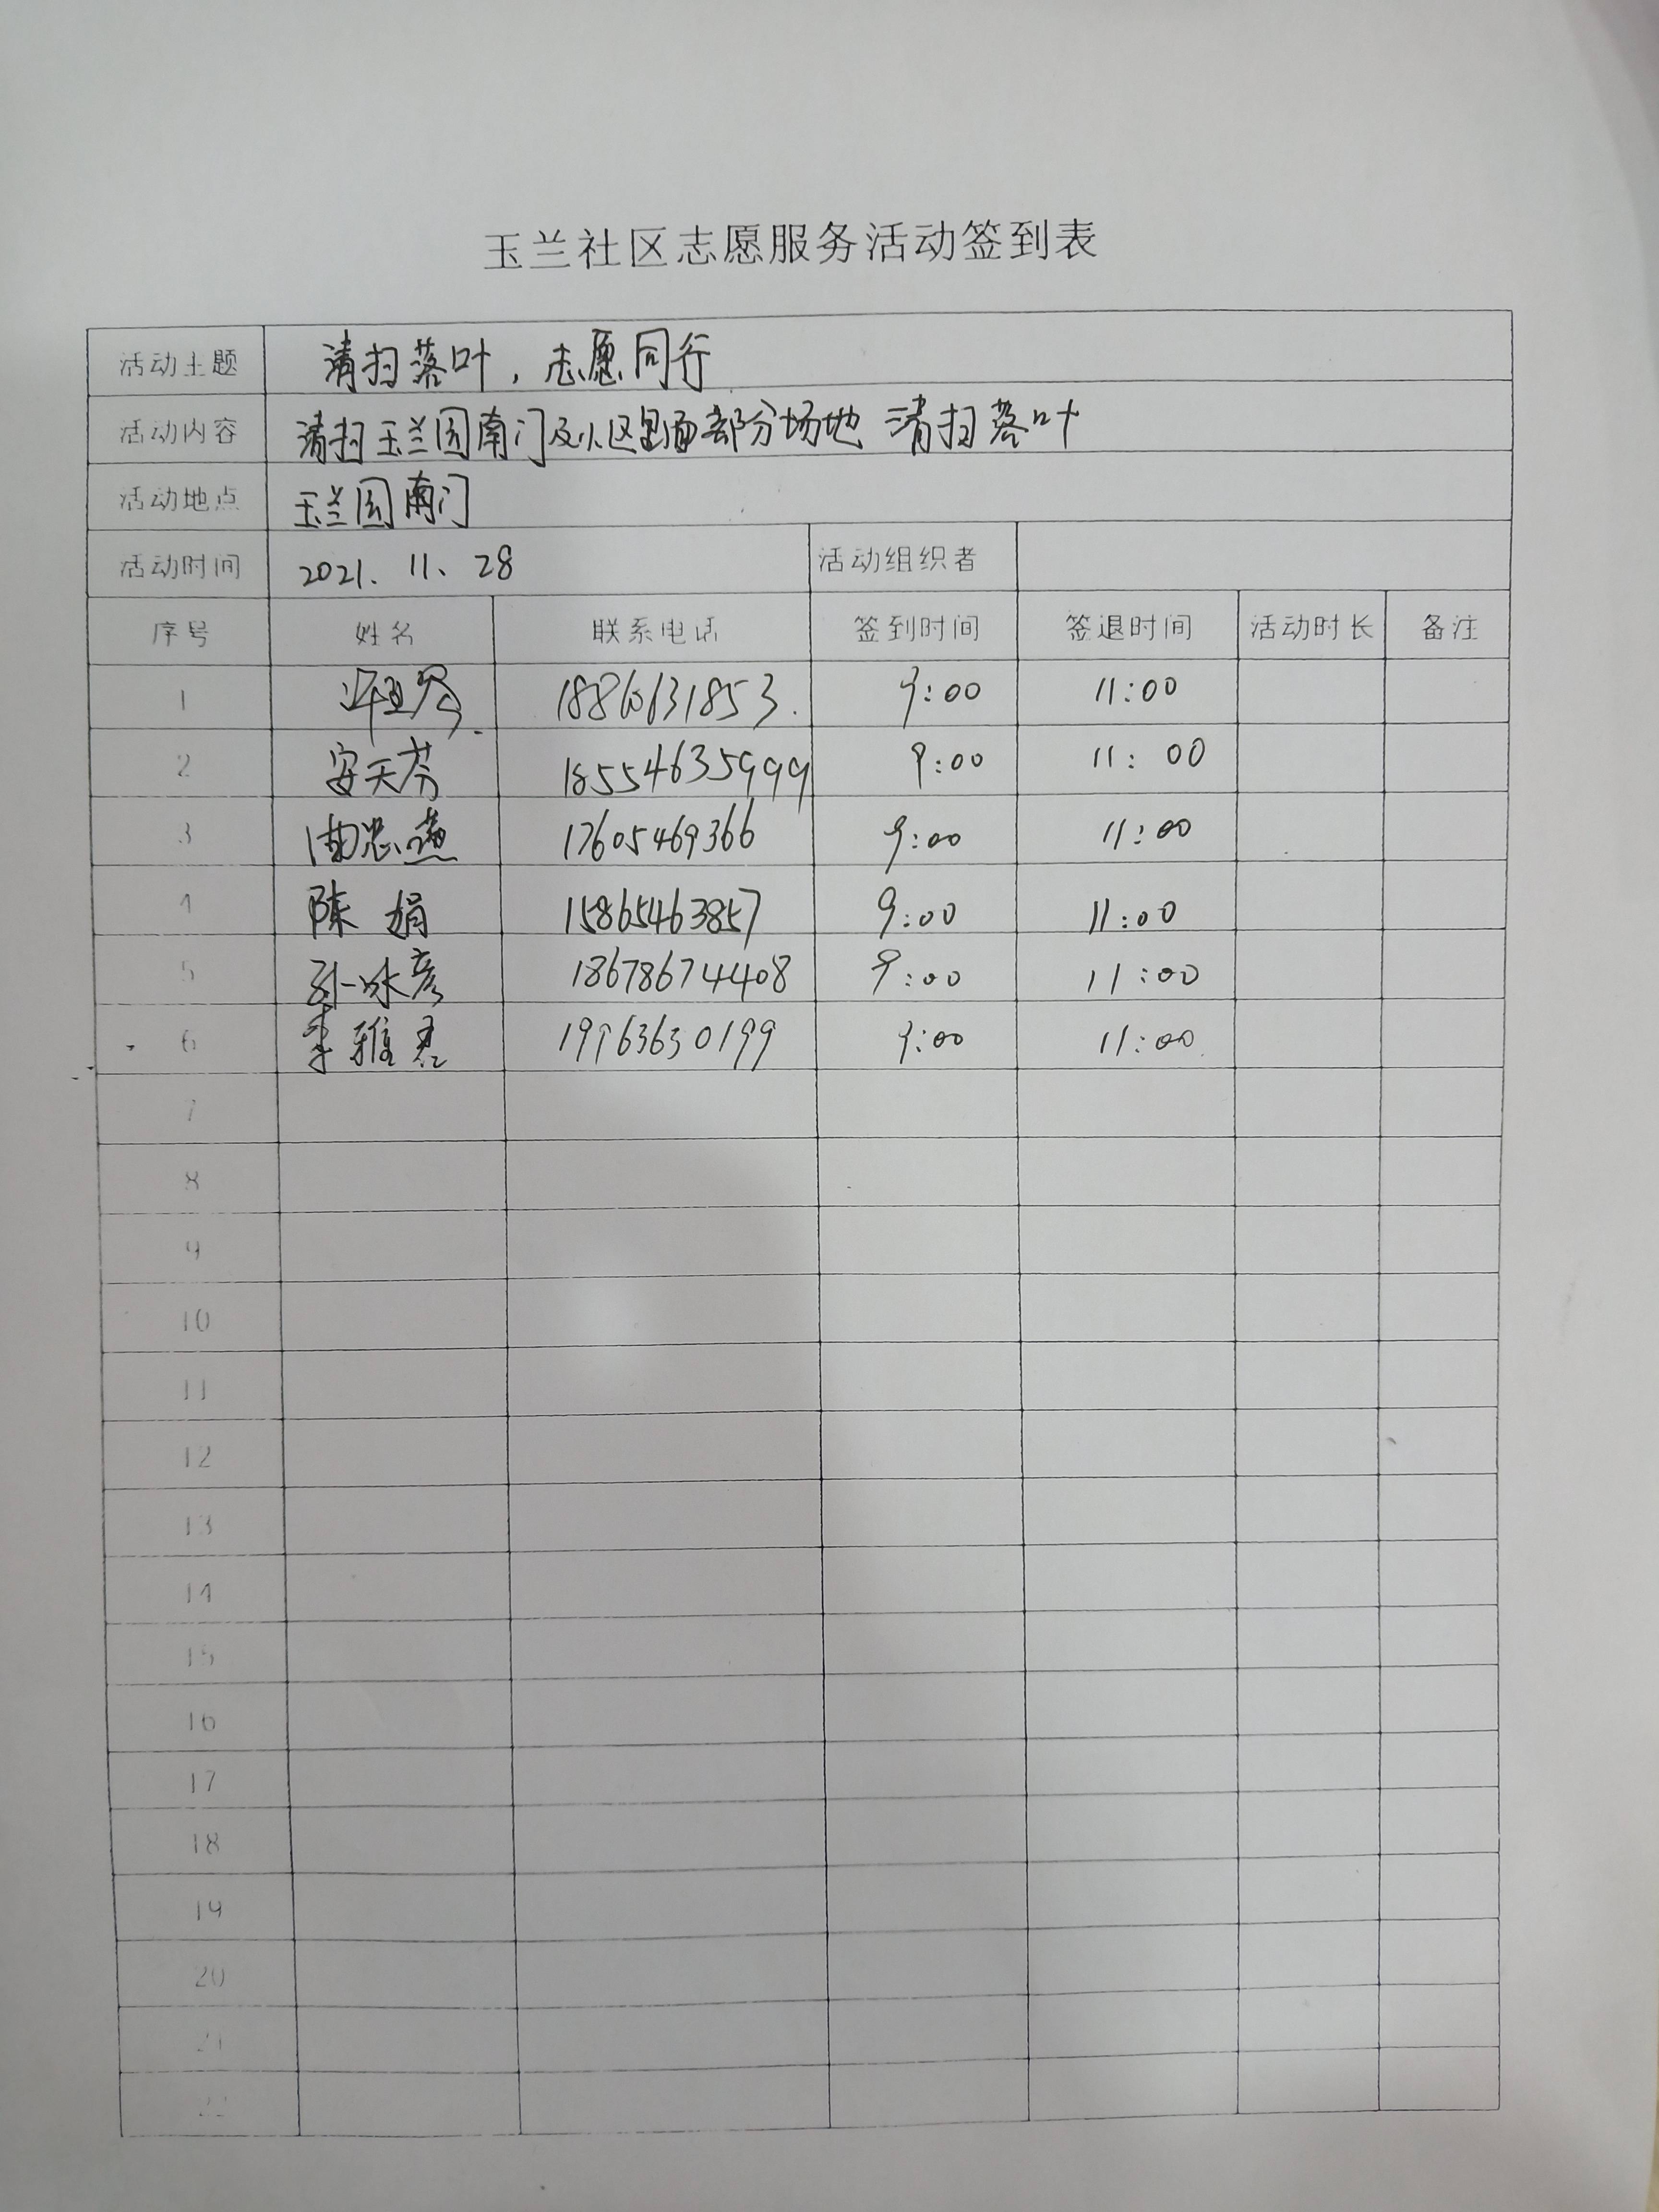 玉兰社区志愿服务活动签到表
活动主题 清扫落叶，志愿同行
活动内容 清扫玉兰园南门及小区里面部分场地 清扫落叶
活动地点 玉兰园南门
活动时间 2021.11、28 活动组织者
序号 姓名 联系电话 签到时间 签退时间 活动时长 备注
1 9:00 11:00
2 安天芬 18554635999 9:00 11:00
3 17605469366 9:00 11:00
4 陈娟 15865463857 9:00 11:00
5 孙冰彦 18678674408 9:00 11:00
6 李雅君 19963630199 9:00 11:00
7
8
9
10
11
12
13
14
15
16
17
18
19
20
21
22